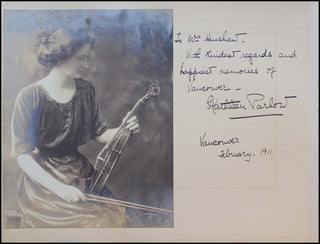 To Mrs Henshaw -
With kindest regards and
happiest memories of
Vancouver -
Kathleen Parlow.
Vancouver.
February. 1911.